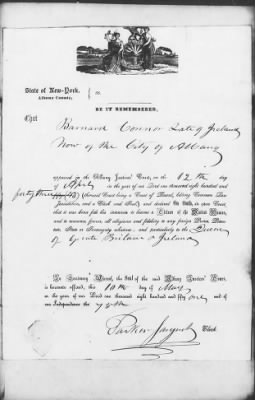 State of New-York,
Albany County, } ss.
BE IT REMEMBERED,
That Barnard Connor Late of Ireland
Now of the City of Albany
appeared in the Albany Justices' Court, on the 12th day
of April in the year of our Lord one thousand eight hundred and
forty three (the said Court being a Court of Record, having Common Law
Jurisdiction, and a Clerk and Seal,) and declared on oath, in open Court,
that it was bona fide his intention to become a Citizen of the United States,
and to renounce forever, all allegiance and fidelity to any foreign Prince, Potentate,
State or Sovereignty whatever, and particularly to the Queen
of Great Britain & Ireland
In Testimony Whereof, the Seal of the said Albany Justices' Court,
is hereunto affixed, this 10th day of May
in the year of our Lord one thousand eight hundred and fifty one and of
our Independence the 75th
Parker Sargent Clerk.